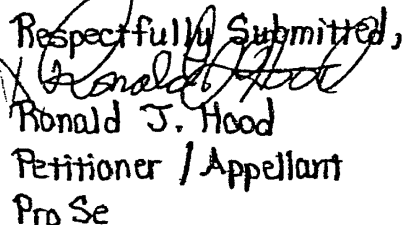 Respectfully Submitted,
Ronald J. Hood
Ronald J. Hood
Petitioner / Appellant
Pro Se